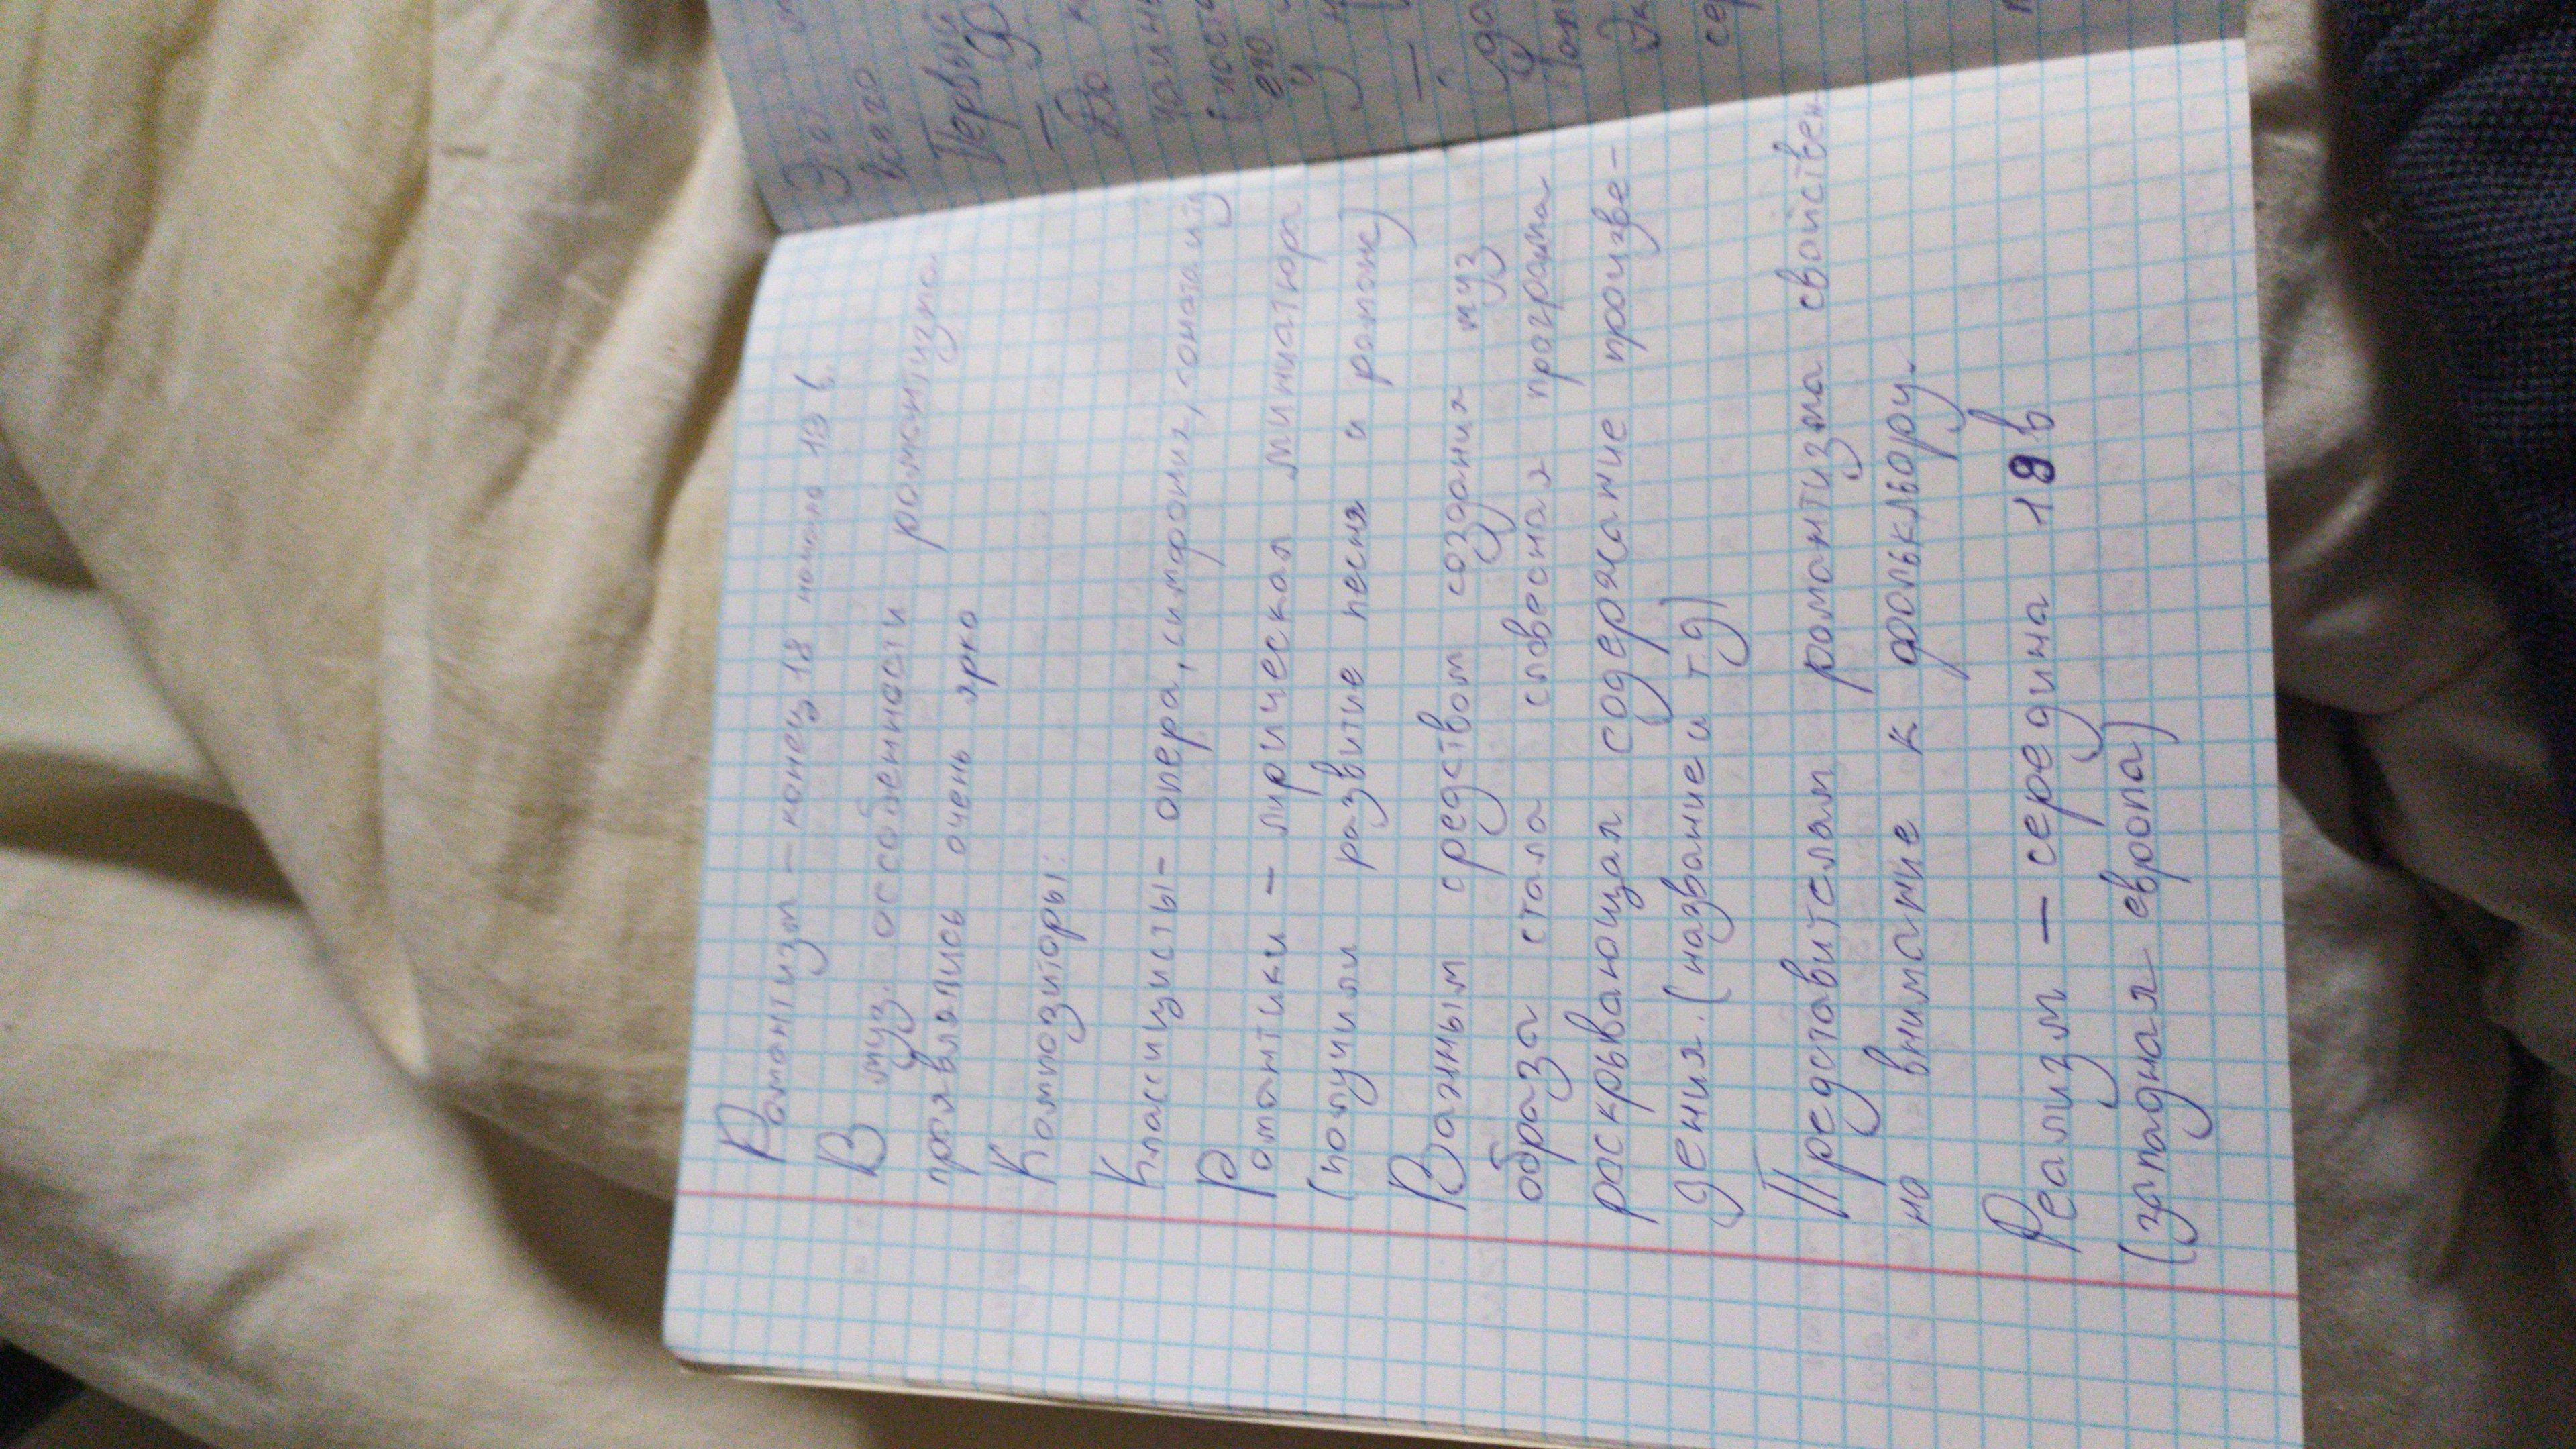 Романтизм – конец 18 начало 19 в.
В муз. оссобенности романтизма
проявлялись очень ярко
Композиторы:
Классицисты – опера, симфония, соната и тд
Романтики – лирическая миниатюра
(получили развитие песня и романс)
Важным средством создания муз
образа стала словесная программа
раскрывающая содержание произве-
дения. (название и тд)
Представителям романтизма свойствен-
но внимание к фолькльору.
Реализм – середина 19 в
(западная европа)
Этот
всего
Первый
– До
(ност
его
у
–